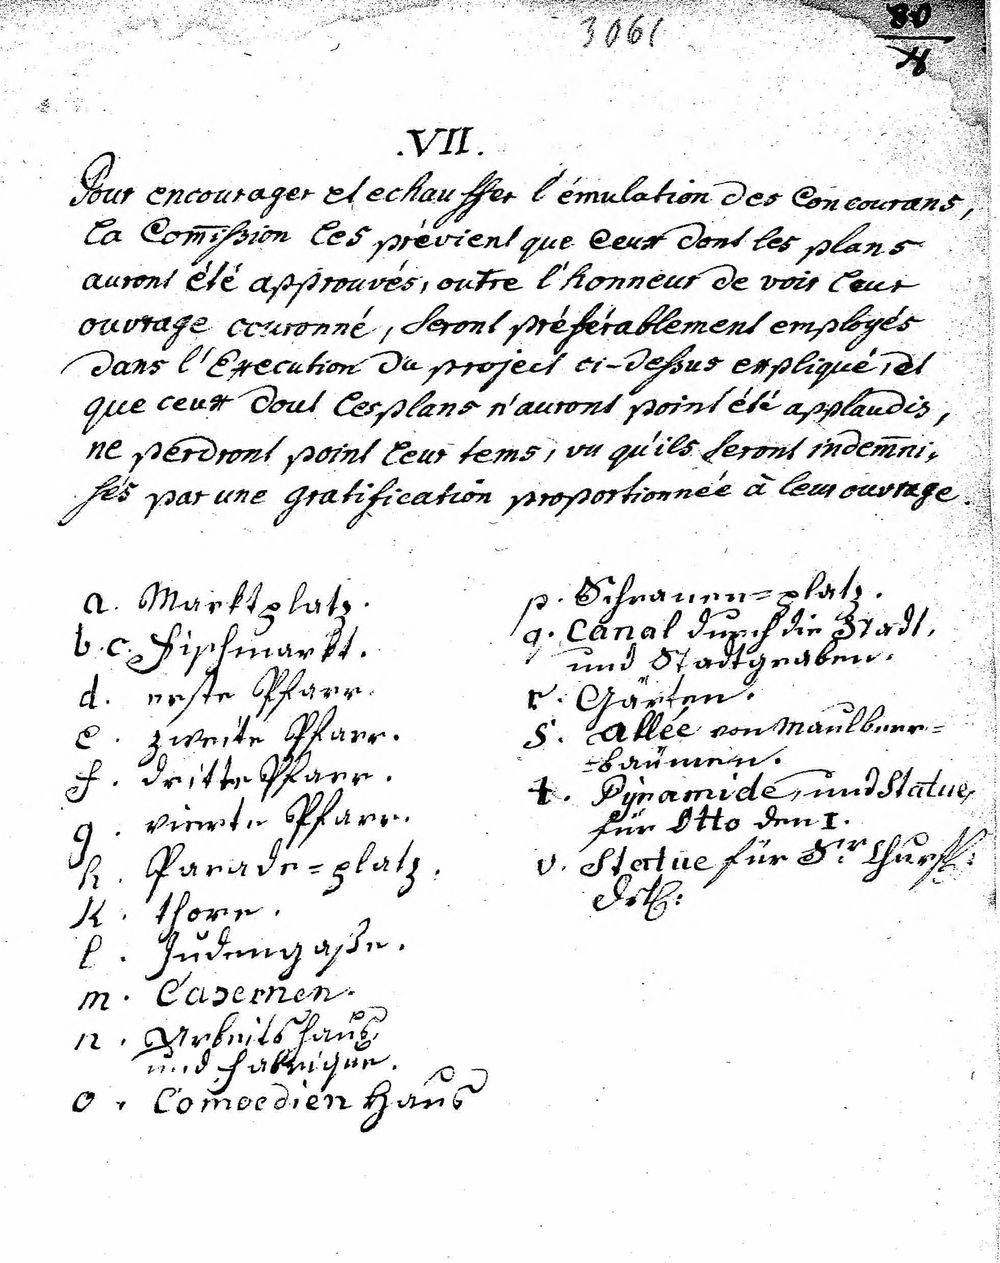 3061
80
.VII.
Pour encourager et echauffer l'émulation des Concourans,
la Com̄ission les prévient que Ceux dont les plans
auront été approuvés, outre l'honneur de voir leur
ouvrage couronné, seront préférablement employés
dans l'Execution du project ci-dessus expliqué, et
que ceux dont les plans n'auront point été applaudis,
ne perdront point leur tems, vu qu'ils seront indem̄ni,
sés par une gratification proportionnée à leur ouvrage.
a. Marktplatz.
b. c. Fischmarkt.
d. erste Pfarr.
e. zweite Pfarr.
f. dritte Pfarr.
g. vierte Pfarr.
h. Parade=platz.
k. thore.
l. Judengaße.
m. Casernen.
n. Arbeitshaus,
und Fabrique.
o. Comoedien Haus
p. Schranen=platz.
q. Canal durch die Stadt,
und Stadtgraben.
r. Gärten.
s. Allée von Maulbeer=
=baümen.
t. Pyramide, und Statue,
für Otto den I.
v. Statue für Sr Churfl: